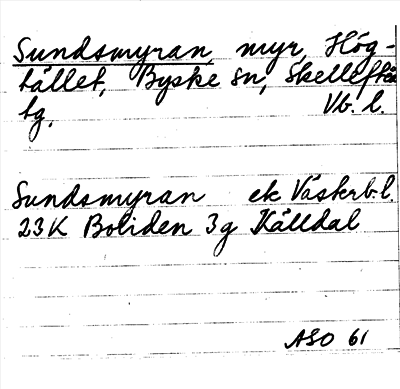 Sundsmyran, myr, Hög-
tället, Byske sn, Skellefteå
tg, Vb. l.
Sundsmyran ek Västerb. l.
23K Boliden 3g Källdal
ASO 61